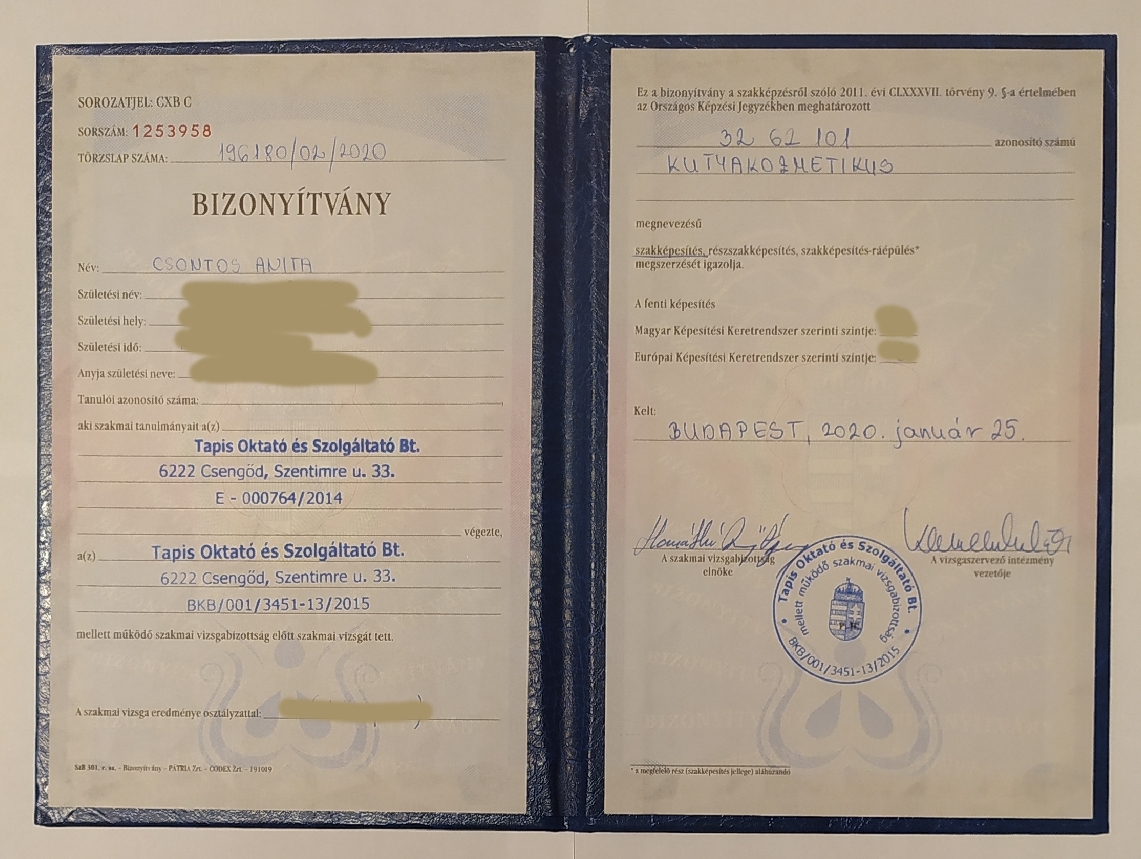 SOROZATJEL: CXB C
SORSZÁM: 1253958
TÖRZSLAP SZÁMA: 196180/02/2020
BIZONYÍTVÁNY
Név: CSONTOS ANITA
Születési név:
Születési hely:
Születési idő:
Anyja születési neve:
Tanulói azonosító száma:
aki szakmai tanulmányait a(z)
Tapis Oktató és Szolgáltató Bt.
6222 Csengőd, Szentimre u. 33.
E - 000764/2014
végezte,
a(z) Tapis Oktató és Szolgáltató Bt.
6222 Csengőd, Szentimre u. 33.
BKB/001/3451-13/2015
mellett működő szakmai vizsgabizottság előtt szakmai vizsgát tett.
A szakmai vizsga eredménye osztályzattal:
SzB 301. r. sz. - Bizonyítvány - PÁTRIA Zrt. - CODEX Zrt. - 191019
Ez a bizonyítvány a szakképzésről szóló 2011. évi CLXXXVII. törvény 9. §-a értelmében
az Országos Képzési Jegyzékben meghatározott
32 62 101 azonosító számú
KUTYAKOZMETIKUS
megnevezésű
szakképesítés, részszakképesítés, szakképesítés-ráépülés*
megszerzését igazolja.
A fenti képesítés
Magyar Képesítési Keretrendszer szerinti szintje:
Európai Képesítési Keretrendszer szerinti szintje:
Kelt:
BUDAPEST, 2020. január 25.
A szakmai vizsgabizottság
elnöke
A vizsgaszervező intézmény
vezetője
Tapis Oktató és Szolgáltató Bt.
mellett működő szakmai vizsgabizottság
BKB/001/3451-13/2015
* a megfelelő rész (szakképesítés jellege) aláhúzandó